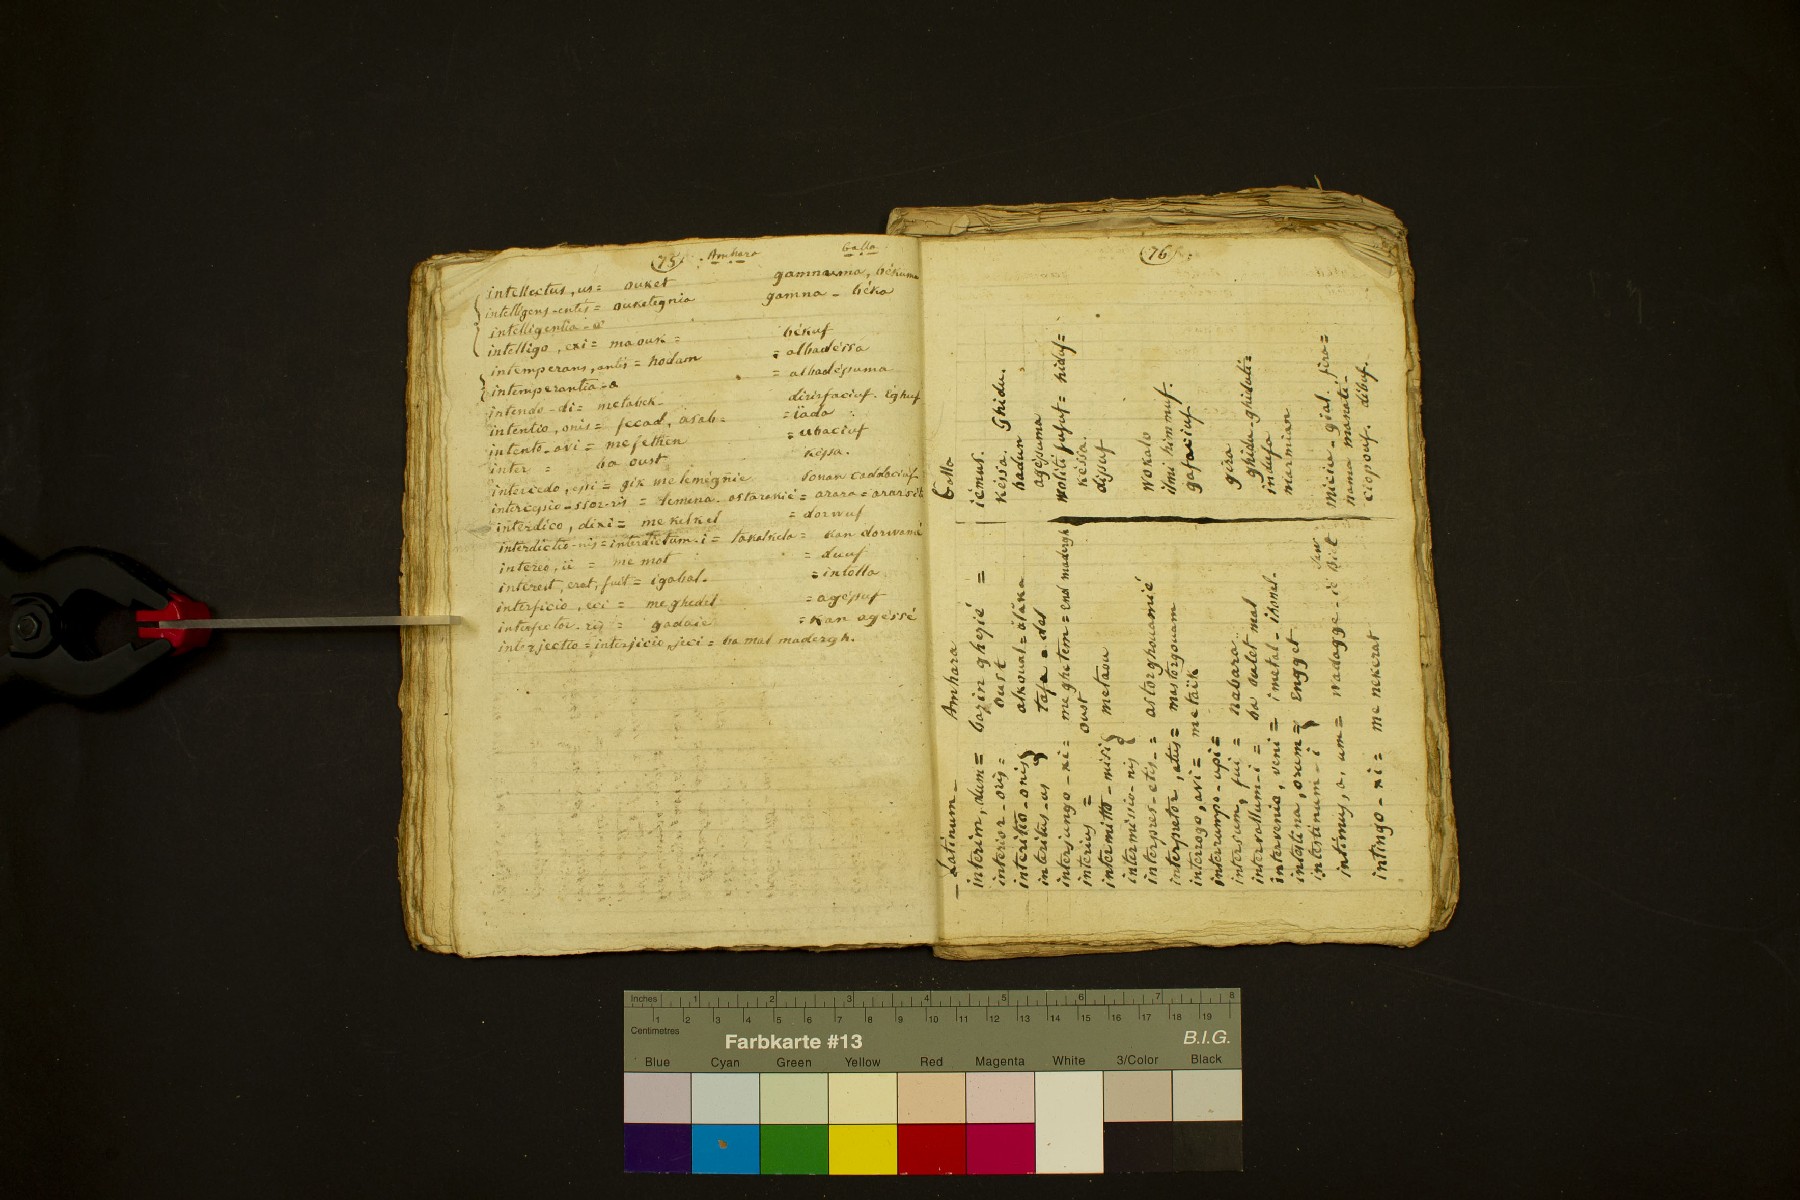 (75) : Amhara Galla
intellectus, us = ouket gamnauma, békuma
intelligens-entis = ouketegnia gamna - béka
intelligentia-æ
intelligo, exi = maouk = békuf
intemperans, antis = hodam = albadéssa
intemperantia-a = albadéssuma
intendo-di = metabek- dirirfaciuf. éghuf
intentio, onis = feccad, asab = = iada
intento, avi = mefethen = ubaciuf
inter = ba oust késsa.
intercedo, essi = gik melemégnie sonan caddaciuf
intercessio-ssor-ris = lemena. astarakié = arara = ararsit
interdico, dixi = mekelkel = dorwuf
interdictio-nis = interdictum-i = takalkela = kan dorwamé
intereo, ii = me mot = duuf
interest, erat, fuit = igabal. = intolla
interficio, eci = meghedel = agésuf
interfector-ris = gadaie = kan agéssé
interjectio = interjicio, jeci = ba mal madergh.
(76) :
Latinum - Amhara Galla
interim, dum = bazin ghezié = iemus.
interior-oris = oust késsa. Ghidu.
interitio-onis alkoual = alàka badun
interitus-us tafa = dal agésuma
interjungo-xi = meghetem = end madergh woliti fufuf = hiduf =
interius = oust késsa.
intermitto-misi metaou disuf
intermissio-nis
interpres-etis = astorghouamié wokalo
interpretor, atus = mastorgouam ilmi himmuf.
interrogo, avi = metaik gafaciuf
interrumpo-upi =
intersum, fui = nabara gira
intervallum-i = ba oulet mal ghidu-ghiduti =
intervenio, veni = imetal-ihonal. indufa
intestina, orum = engget marmian
intestinum-i
intimus, a, um = wadagge - micia-gial. fira =
nama manati-
intingo-xi = me nekerat ciopouf. dibuf.
Inches 1 2 3 4 5 6 7 8
1 2 3 4 5 6 7 8 9 10 11 12 13 14 15 16 17 18 19
Centimetres
Farbkarte #13 B.I.G.
Blue Cyan Green Yellow Red Magenta White 3/Color Black